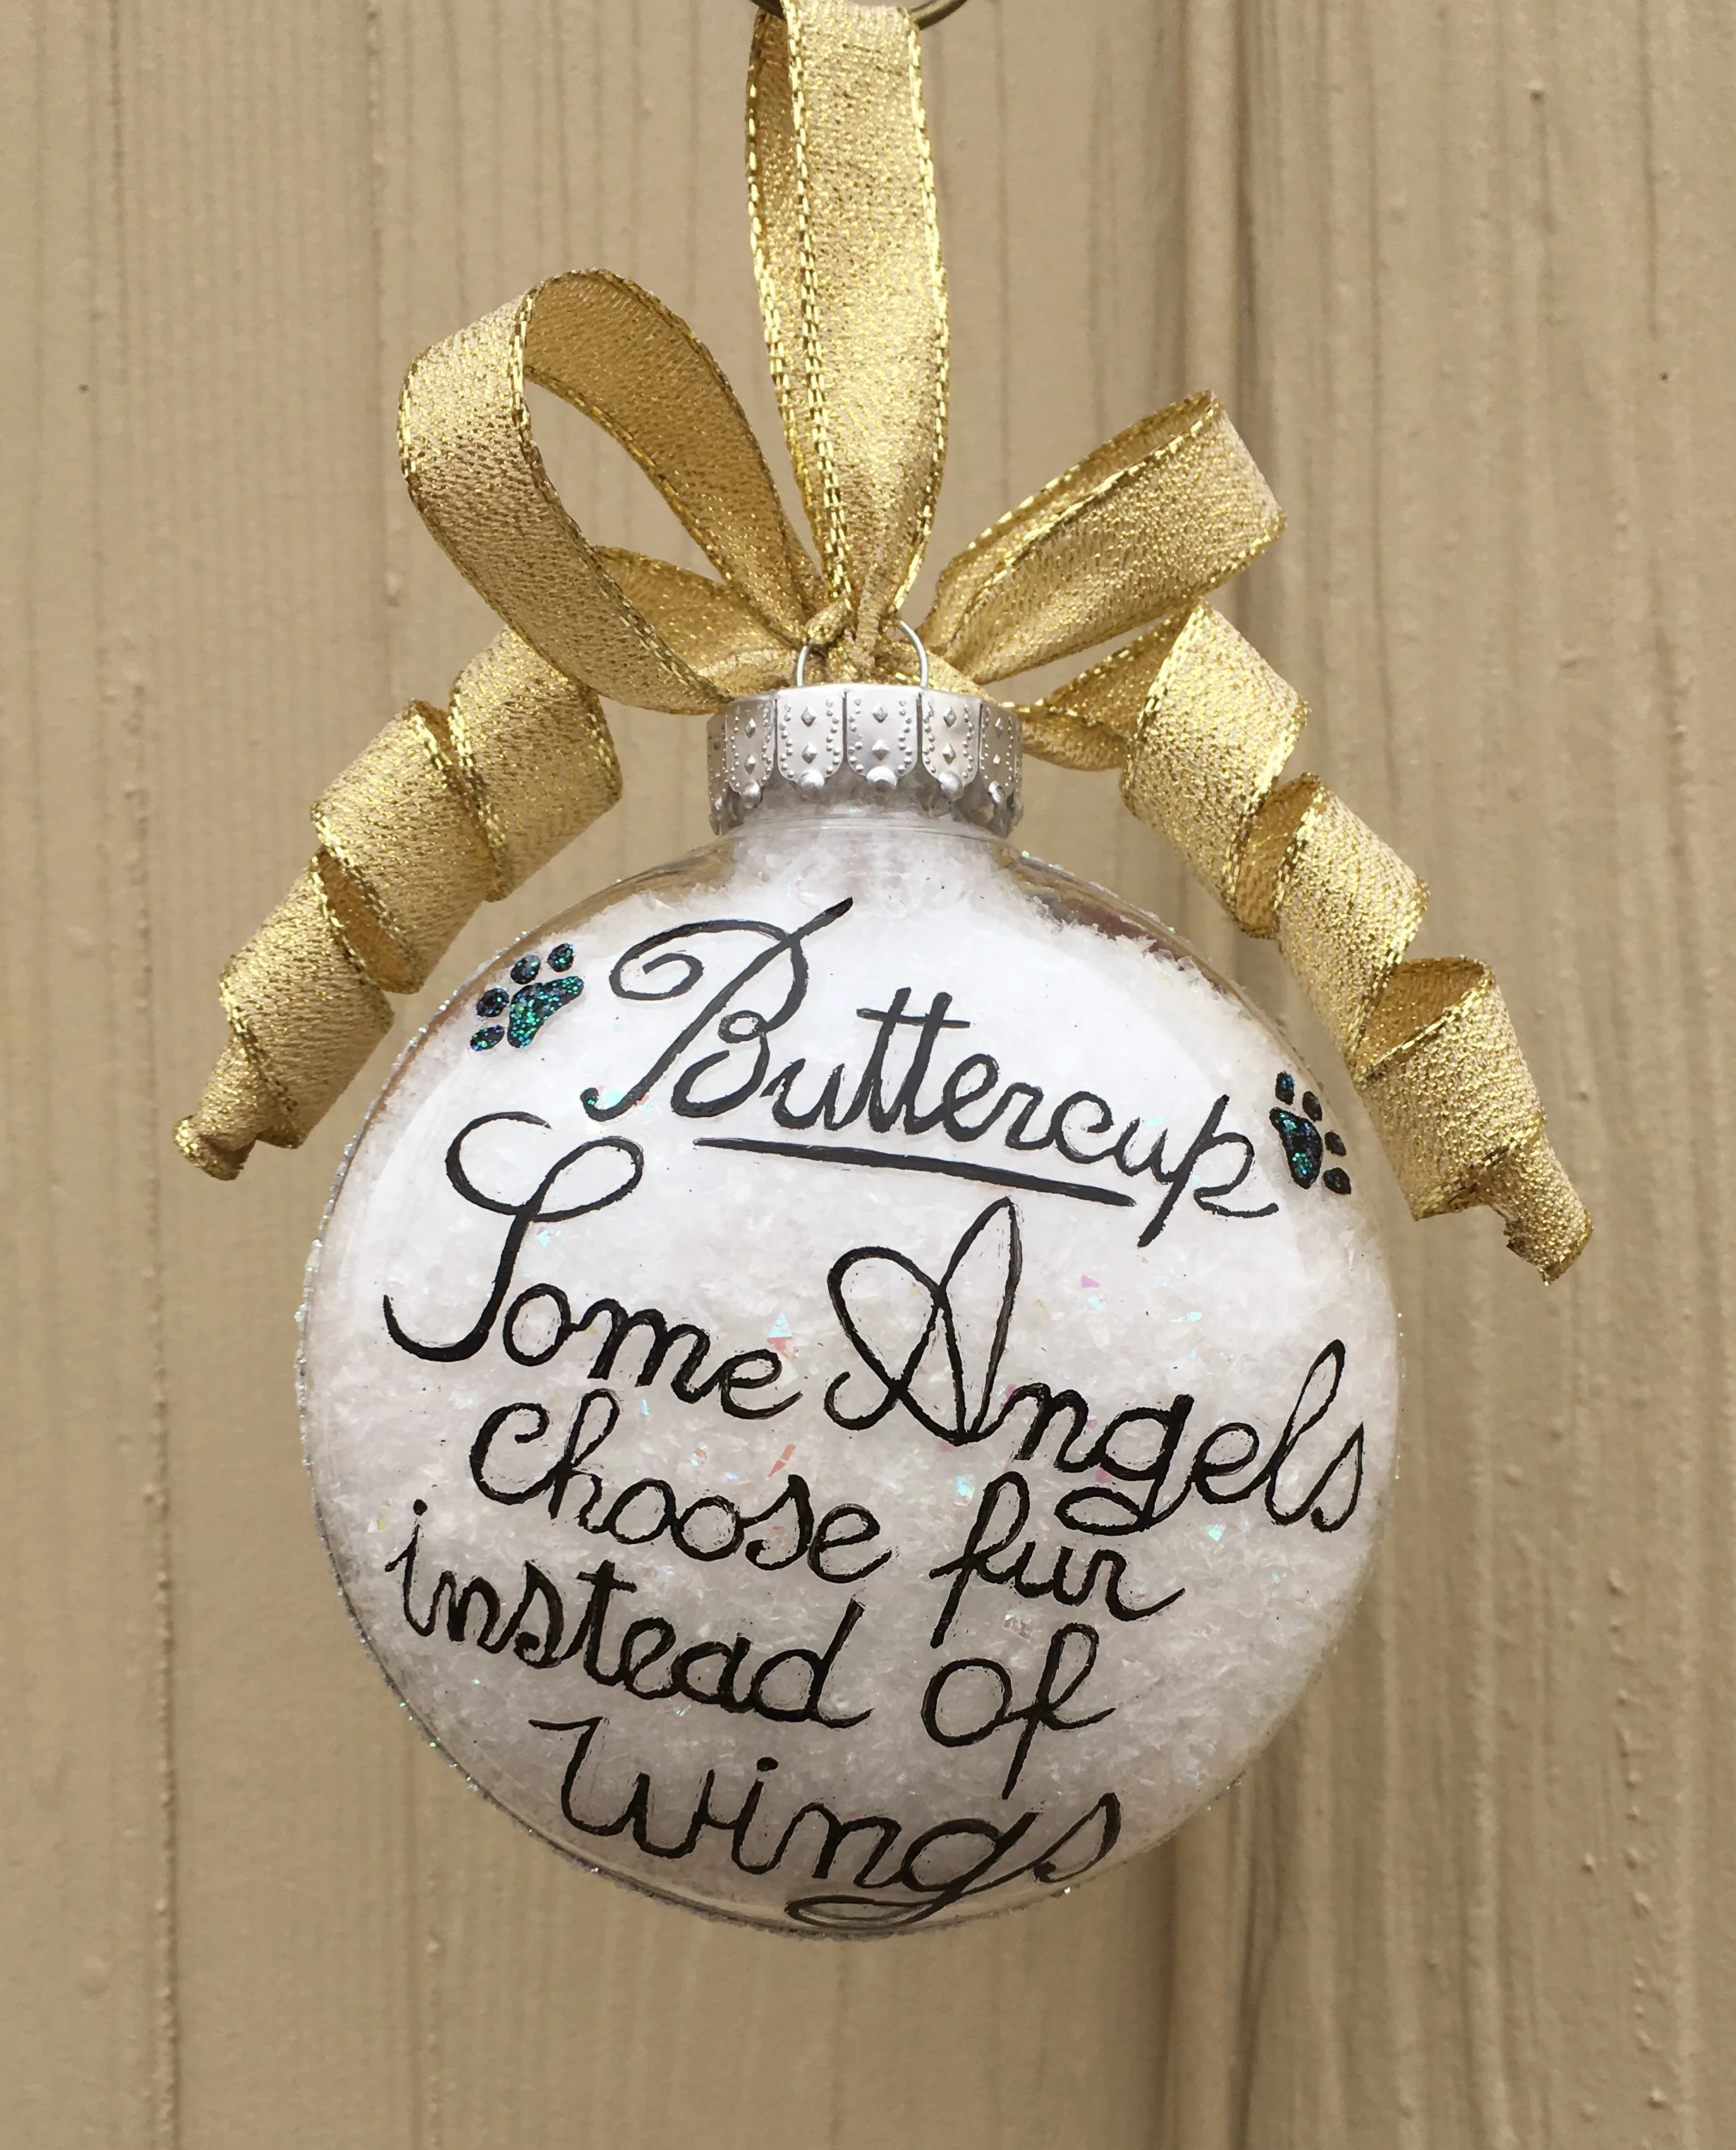 Buttercup
Some Angels
choose fur
instead of
wings